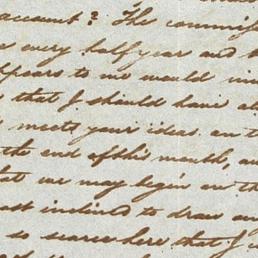 account? The commiss
every half year and
ppears to me would in
that I should have a
meets your ideas on t
the end of this month, an
at we may begin on th
ast inclined to draw an
so scarce here that I